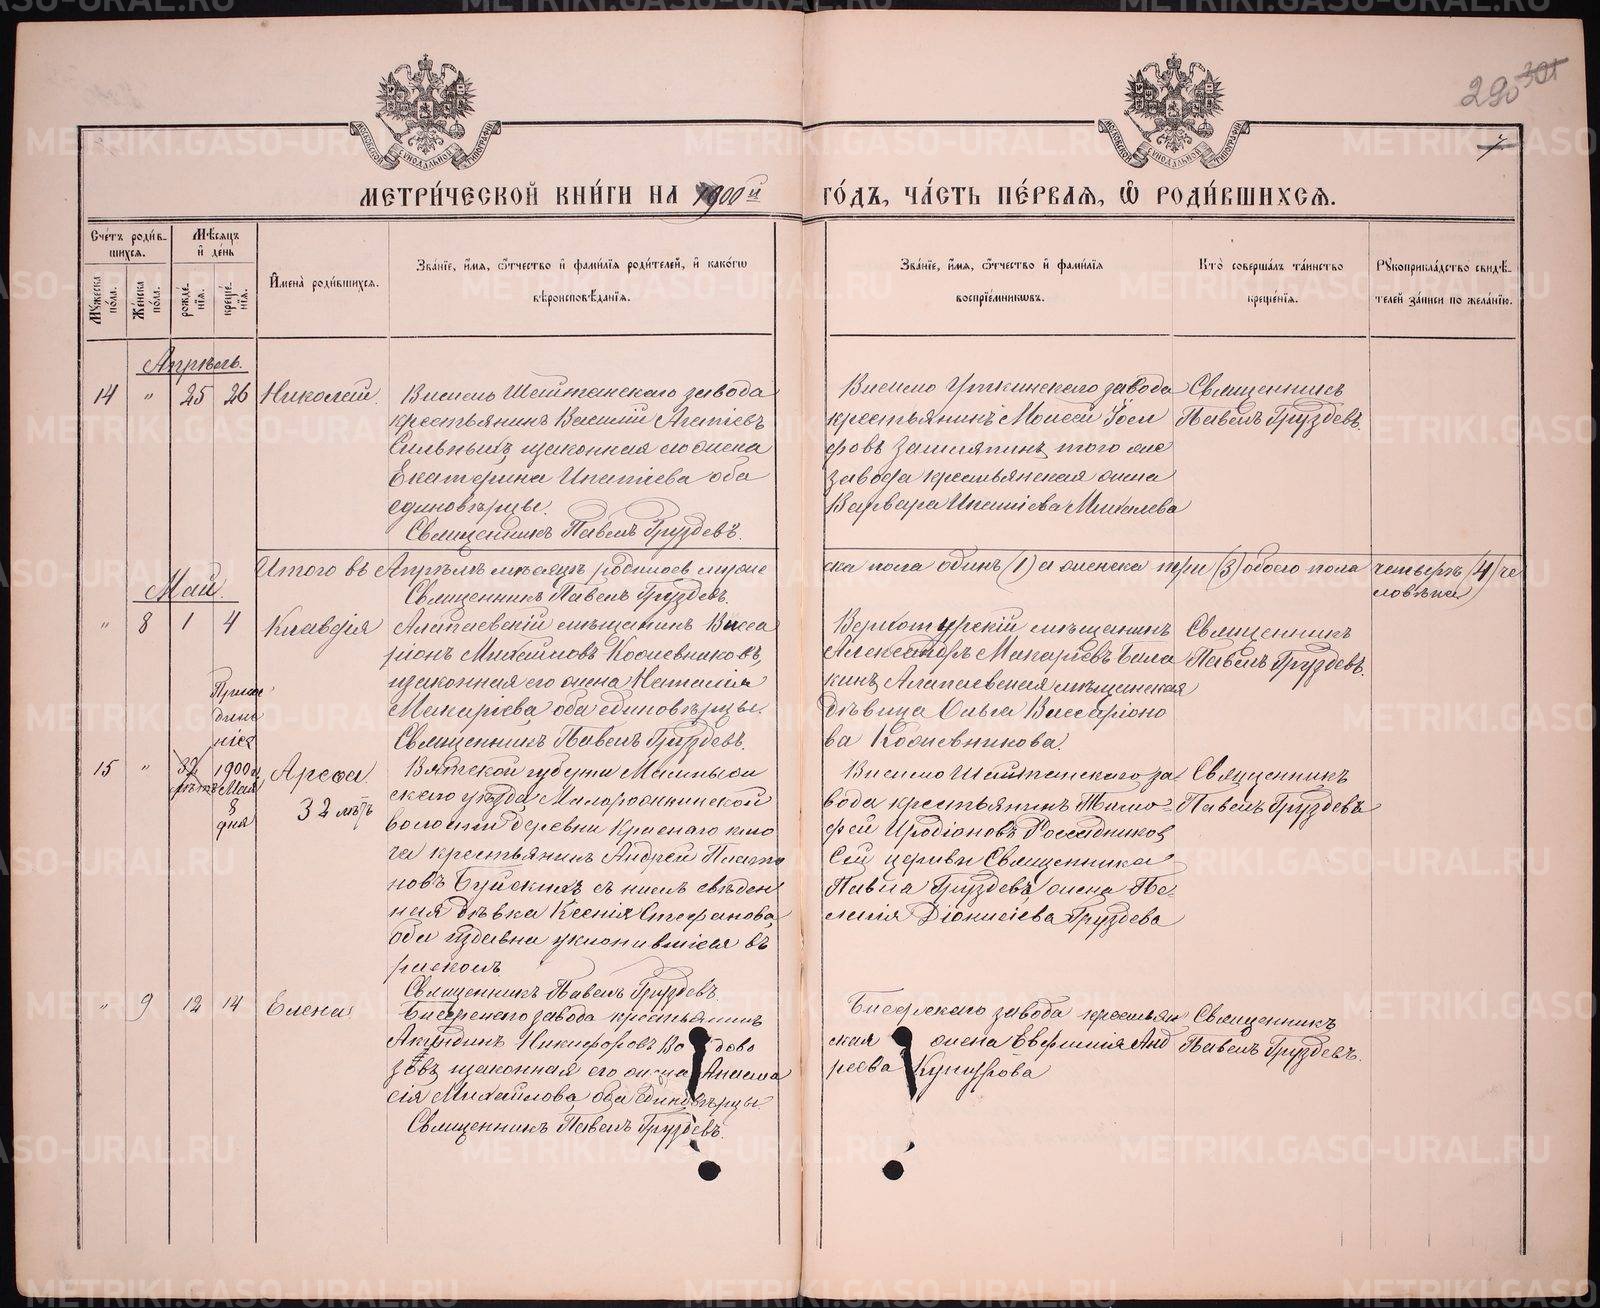 290 301
7
МОСКОВСКОЙ СѴНОДАЛЬНОЙ ТИПОГРАФІИ
МОСКОВСКОЙ СѴНОДАЛЬНОЙ ТИПОГРАФІИ
МЕТРИ́ЧЕСКОЙ КНИ́ГИ НА 1900й ГО́ДЪ, ЧА́СТЬ ПЕ́РВАЯ, Ѿ РОДИ́ВШИХСЯ.
Сче́тъ роди́в-
шихся.
Мѣ́сяцъ
и҆ де́нь
Мꙋ́жеска по́ла.
Же́нска по́ла.
рожде́нїѧ.
креще́нїѧ.
И҆мена̀ роди́вшихся.
Зва́нїе, и҆́мя, ѻ҆́тчество и҆ фами́лїя роди́телей, и҆ како́гѡ
вѣроисповѣ́данїя.
Зва́нїе, и҆́мя, ѻ҆́тчество и҆ фами́лїя
воспрїе́мникѡвъ.
Кто̀ соверша́лъ та́инство
креще́нїя.
Рꙋкоприкла́дство свидѣ́-
телей за́писи по жела́нїю.
Апрѣль.
14 " 25 26 Николай
Висимо Шайтанскаго завода
крестьянинъ Василій Агапіевъ
Сильныхъ, законная его жена
Екатерина Ипатіева оба
единовѣрцы.
Священникъ Павелъ Груздевъ.
Висимо Уткинскаго завода
крестьянинъ Моисей Іоси
фовъ того же
завода крестьянская жена
Варвара Ипатіева Михалева
Священникъ
Павелъ Груздевъ.
Итого въ Апрѣлѣ мѣсяцѣ родилось муже
ска пола одинъ (1) а женска три (3) обоего пола четверъ (4) че
ловѣка
Священникъ Павелъ Груздевъ.
Май.
" 8 1 4 Клавдія
Алапаевскій мѣщанинъ Висса
ріонъ Михайловъ Кожевниковъ,
законная его жена Наталія
Макаріева, оба единовѣрцы.
Священникъ Павелъ Груздевъ.
Верхотурскій мѣщанинъ
Александръ Макаріевъ Бала
кинъ, Алапаевская мѣщанская
дѣвица Ольга Виссаріоно
ва Кожевникова.
Священникъ
Павелъ Груздевъ.
Присо
едине
ніся
15 " 32 лѣтъ 1900 г.
Мая
8
дня
Арефа
32 лѣтъ
Вятской губерніи Малмыж
скаго уѣзда
волости деревни Краснаго клю
ча крестьянинъ Андрей Плато
новъ Буйскихъ съ нимъ сведен
ная дѣвка Ксенія Стефанова,
оба издавна уклонившіеся въ
расколъ
Священникъ Павелъ Груздевъ.
Висимо Шайтанскаго за-
вода крестьянинъ Тимо-
фей Иродіоновъ Разсадниковъ
Сей церкви Священника
Павла Груздева жена Пе-
лагія Діонисіева Груздева
Священникъ
Павелъ Груздевъ
" 9 12 14 Елена
Бисерскаго завода крестьянинъ
Акиндинъ Никифоровъ
законная его жена Анаста
сія Михайлова, оба единовѣрцы.
Священникъ Павелъ Груздевъ.
Бисерскаго завода крестьян
ская жена Евфимія Анд
реева
Священникъ
Павелъ Груздевъ.
METRIKI.GASO-URAL.RU